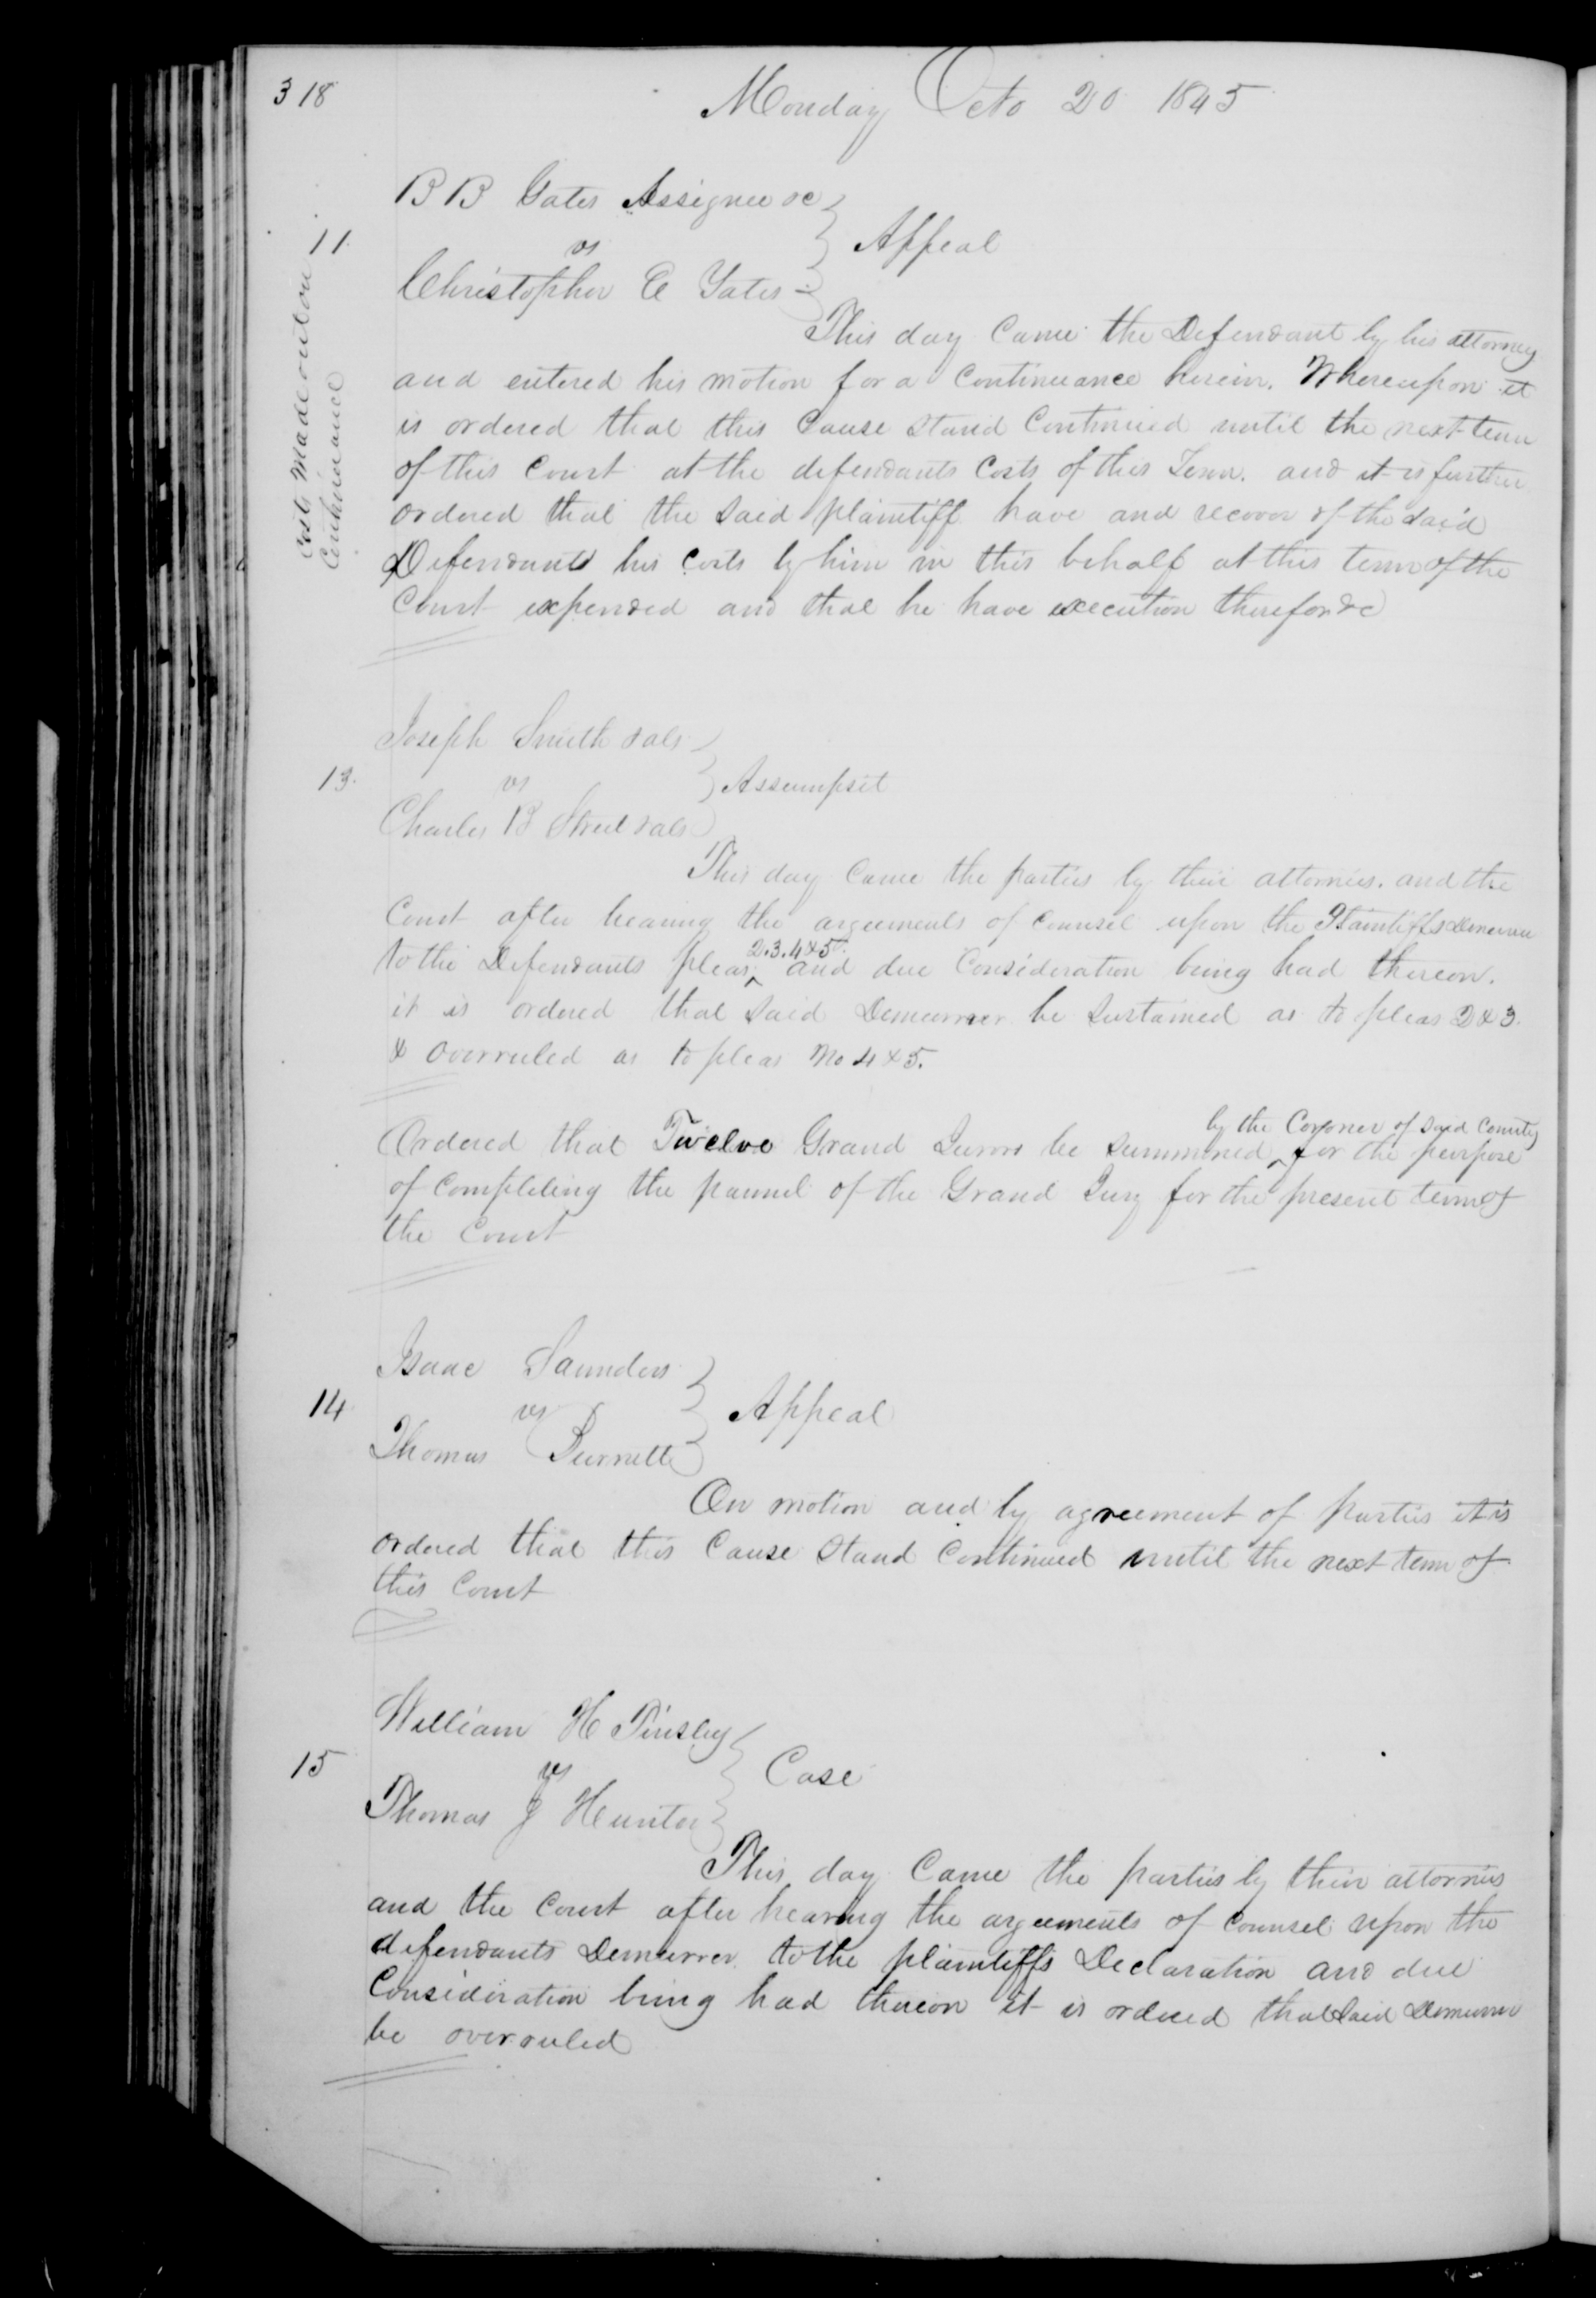 318
Monday Octo 20 1845
B B Gates Assignee &c
11. vs Appeal
Christopher E Yates
Costs Made out on
Continuance
This day Came the Defendant by his attorney
and entered his motion for a Continuance herein. Whereupon it
is ordered that this Cause stand Continued until the next term
of this Court at the defendants Costs of this Term. and it is further
ordered that the said plaintiff have and recover of the said
Defendants his Costs by him in this behalf at this term of the
Court expended and that he have execution therefor &c
Joseph Smith & als
13. vs Assumpsit
Charles B Street & als
This day Came the parties by their attornies. and the
Court after hearing the arguements of Counsel upon the Plaintiffs Demurrer
to the Defendants pleas ^ 2.3.4&5. and due Consideration being had thereon.
it is ordered that said Demurrer be Sustained as to pleas 2&3.
& overruled as to pleas No 4&5.
Ordered that Twelve Grand Jurors be summoned ^ by the Coroner of said County for the purpose
of Completing the pannel of the Grand Jury for the present term of
the Court
Isaac Saunders
14 vs Appeal
Thomas Burnett
On motion and by agreement of parties it is
ordered that this Cause stand Continued until the next term of
this Court
William H Tinsley
15 vs Case
Thomas J Hunter
This day Came the parties by their attornies
and the Court after hearing the arguements of Counsel upon the
defendants Demurrer to the plaintiffs Declaration and due
Consideration being had thereon it is ordered that said Demurrer
be overruled